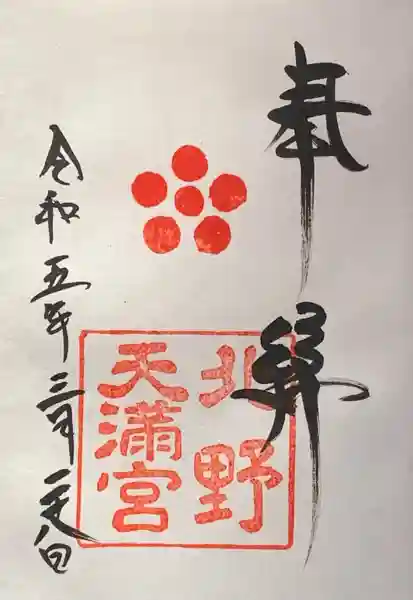 奉拝
北野
天満宮
令和五年三月二十八日